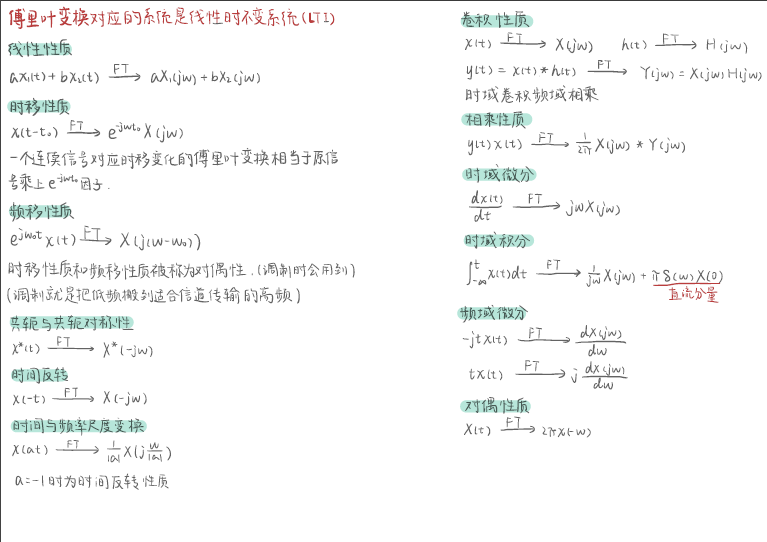 傅里叶变换对应的系统是线性时不变系统(LTI)
线性性质
ax₁(t)+bx₂(t) —FT→ aX₁(jw)+bX₂(jw)
时移性质
x(t-t₀) —FT→ e^{-jwt₀}X(jw)
一个连续信号对应时移变化的傅里叶变换相当于原信
号乘上e^{-jwt₀}因子.
频移性质
e^{jw₀t}x(t) —FT→ X(j(w-w₀))
时移性质和频移性质被称为对偶性.(调制时会用到)
(调制就是把低频搬到适合信道传输的高频)
共轭与共轭对称性
x*(t) —FT→ X*(-jw)
时间反转
x(-t) —FT→ X(-jw)
时间与频率尺度变换
x(at) —FT→ 1/|a| X(j w/|a|)
a=-1时为时间反转性质
卷积性质
x(t) —FT→ X(jw) h(t) —FT→ H(jw)
y(t)=x(t)*h(t) —FT→ Y(jw)=X(jw)H(jw)
时域卷积频域相乘
相乘性质
y(t)x(t) —FT→ 1/2π X(jw)*Y(jw)
时域微分
dx(t)/dt —FT→ jwX(jw)
时域积分
∫_{-∞}^{t} x(t)dt —FT→ 1/jw X(jw)+πδ(w)X(0)
直流分量
频域微分
-jtx(t) —FT→ dX(jw)/dw
tx(t) —FT→ j dX(jw)/dw
对偶性质
X(t) —FT→ 2πx(-w)